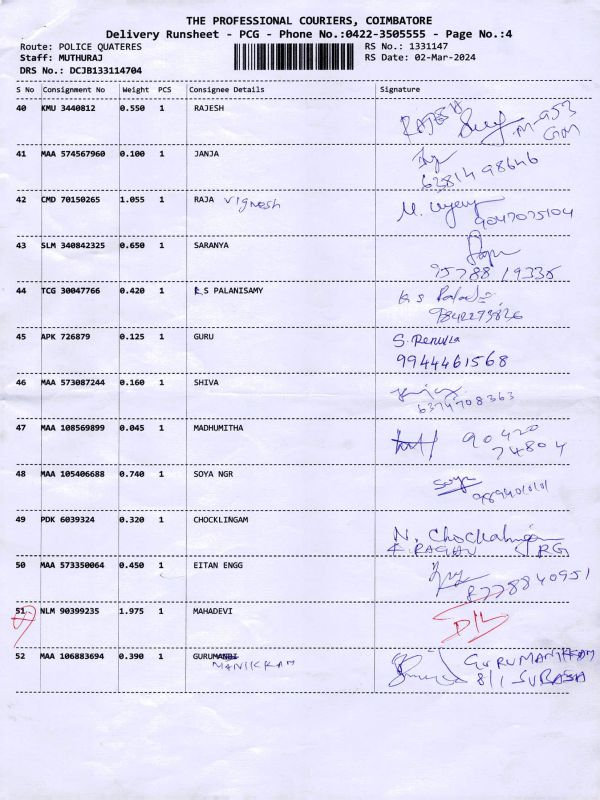 THE PROFESSIONAL COURIERS, COIMBATORE
Delivery Runsheet - PCG - Phone No.:0422-3505555 - Page No.:4
Route: POLICE QUATERES RS No.: 1331147
Staff: MUTHURAJ RS Date: 02-Mar-2024
DRS No.: DCJB133114704
S No Consignment No Weight PCS Consignee Details Signature
40 KMU 3440812 0.550 1 RAJESH RAJESH M-953
GM
41 MAA 574567960 0.100 1 JANJA
6381498646
42 CMD 70150265 1.055 1 RAJA Vignesh M.
9047075104
43 SLM 340842325 0.650 1 SARANYA
95788 19335
44 TCG 30047766 0.420 1 K S PALANISAMY K S
9842273826
45 APK 726879 0.125 1 GURU S. Renuka
9944461568
46 MAA 573087244 0.160 1 SHIVA
6374708363
47 MAA 108569899 0.045 1 MADHUMITHA 90420
74804
48 MAA 105406688 0.740 1 SOYA NGR Soya
9894010101
49 PDK 6039324 0.320 1 CHOCKLINGAM N. Chockalingam
RAGHAV RG
50 MAA 573350064 0.450 1 EITAN ENGG
8778840951
51 NLM 90399235 1.975 1 MAHADEVI D/L
52 MAA 106883694 0.390 1 GURUMANDI GURUMANIKKAM
MANIKKAM 8/1 SUBASA